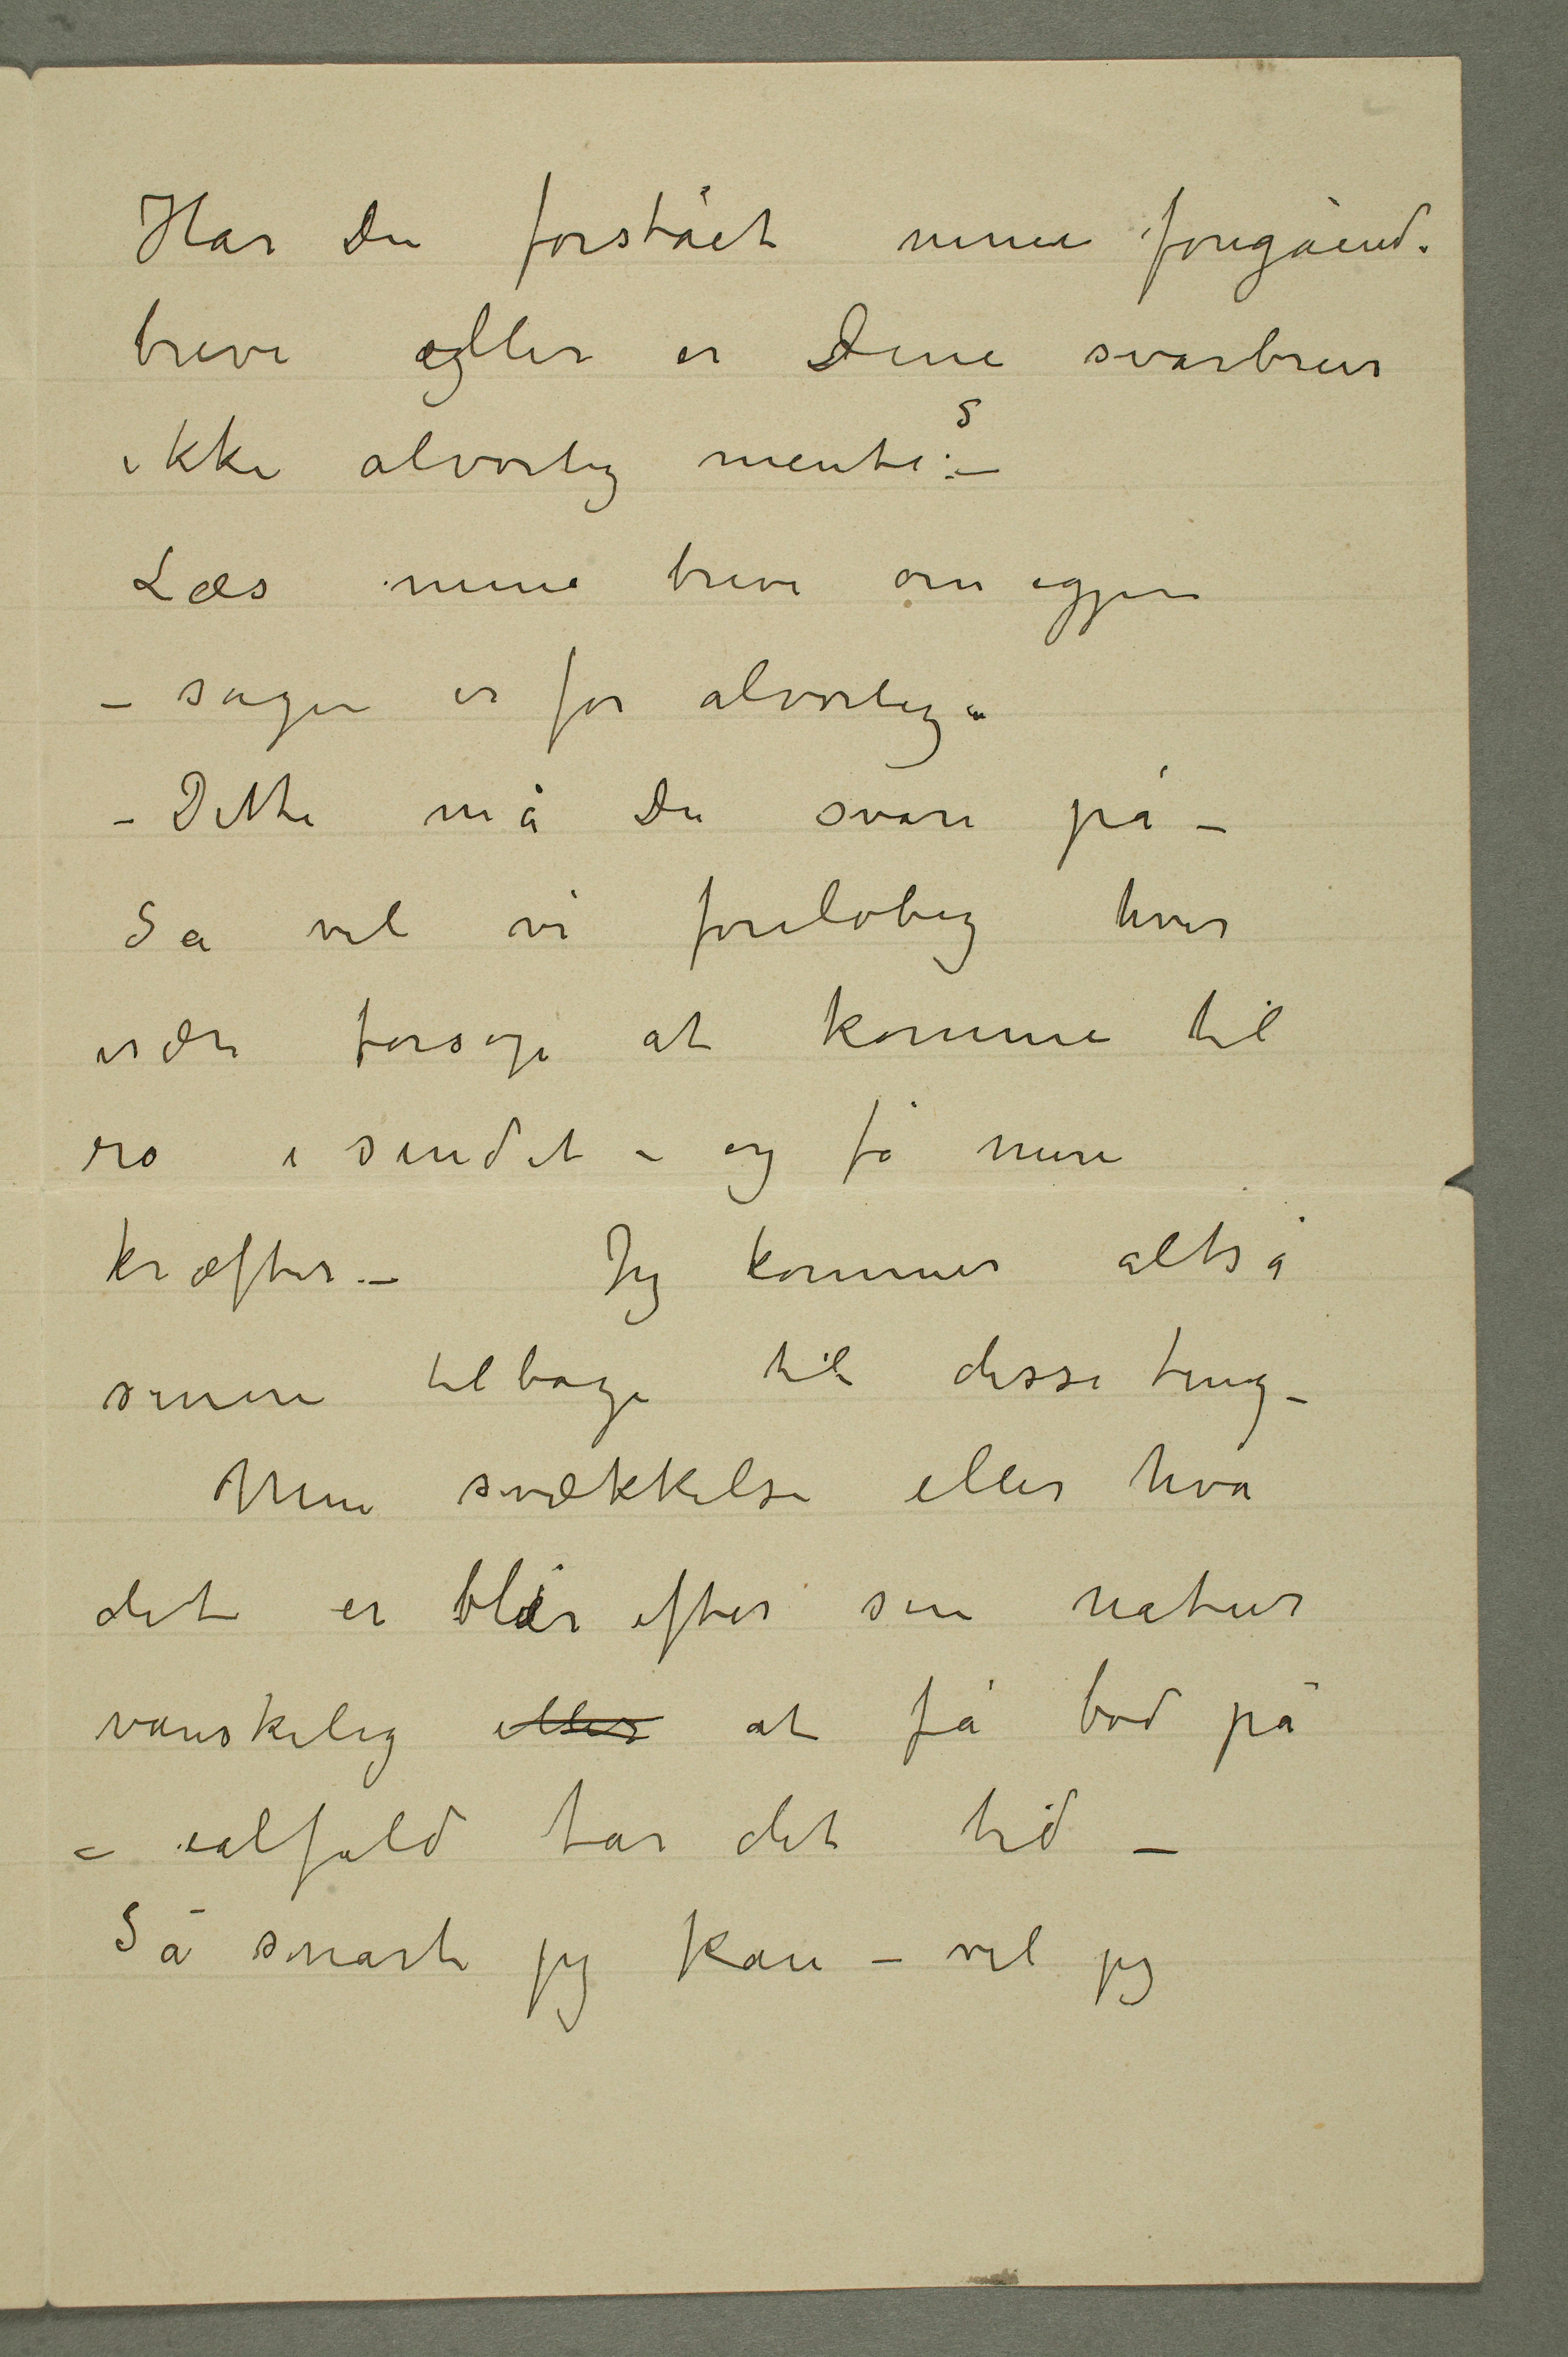 Har Du forstået mine foregående
breve eller er Dine svarbreve
ikke alvorlig mente? –
Læs mine breve om igjen
– sagen er for alvorlig.
– Dette må Du svare på –
Så vil vi foreløbig hver
især forsøge at komme til
ro i sindet – og få mere
kræfter. – Jeg kommer altså
senere tilbage til disse ting –
Min svækkelse eller hva
det er blir efter sin natur
vanskelig eller at få bod på
– ialfald tar det tid –
Så snart jeg kan – vil jeg